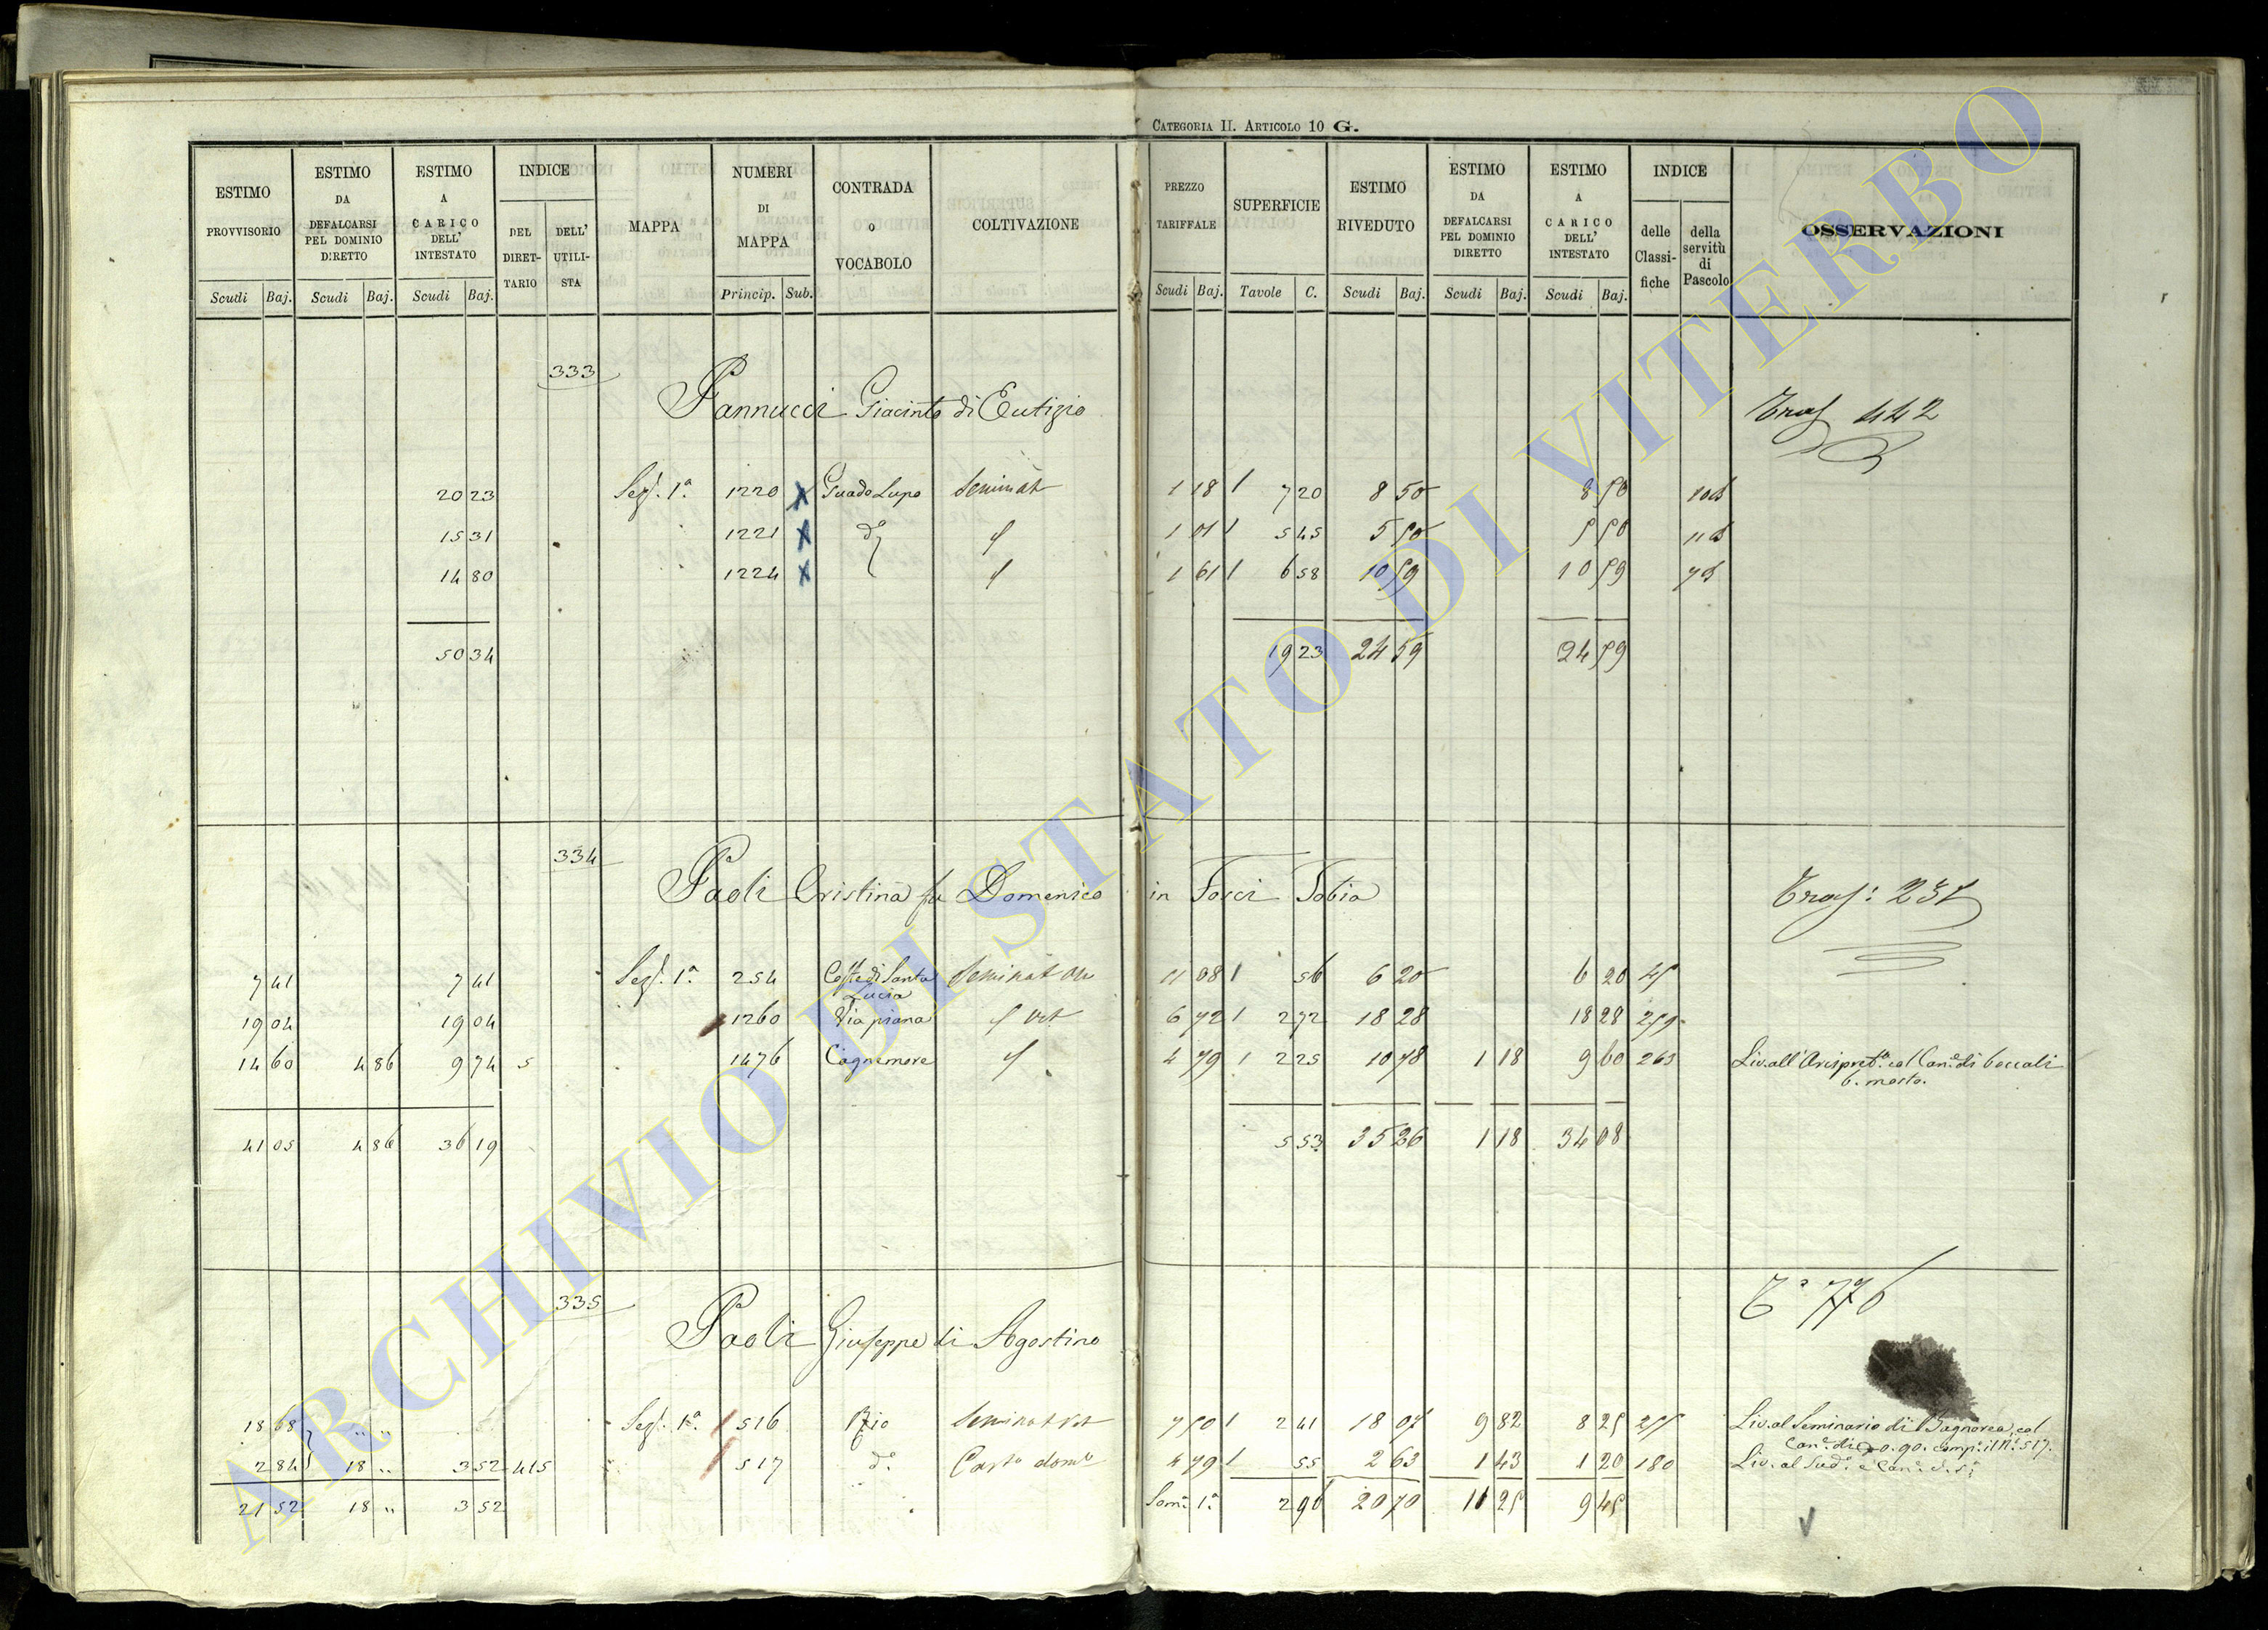 CATEGORIA II. ARTICOLO 10 G.
ESTIMO PROVVISORIO | ESTIMO DA DEFALCARSI PEL DOMINIO DIRETTO | ESTIMO A CARICO DELL' INTESTATO | INDICE DEL DIRETTARIO | DELL' UTILISTA | MAPPA | NUMERI DI MAPPA | CONTRADA O VOCABOLO | COLTIVAZIONE | PREZZO TARIFFALE | SUPERFICIE | ESTIMO RIVEDUTO | ESTIMO DA DEFALCARSI PEL DOMINIO DIRETTO | ESTIMO A CARICO DELL' INTESTATO | INDICE delle Classifiche | della servitù di Pascolo | OSSERVAZIONI
Scudi Baj. | Scudi Baj. | Scudi Baj. | Princip. Sub. | Scudi Baj. | Tavole C. | Scudi Baj. | Scudi Baj. | Scudi Baj.
333
Pannucci Giacinto di Eutizio
Tras 442
20 23 Sez. 1ª 1220 Guado Lupo Seminat 1 18 7 20 8 50 8 50
15 31 1221 dº 1 01 5 45 5 50 5 50
14 80 1224 1 61 6 58 10 59 10 59
50 34 19 23 24 59 24 59
334
Paoli Cristina fu Domenico in Fosci Tobia
Tras: 251
7 41 7 41 Sez. 1ª 254 Coste di Santa Lucia 11 08 56 6 20 6 20 45
19 04 19 04 1260 Via piana 6 72 2 72 18 28 18 28 259
14 60 4 86 9 74 5 1476 Cagnemore 4 79 2 25 10 78 1 18 9 60 263 Liv. all' Arcipret.ª col Can.e di boccali
6. mosto.
41 05 4 86 36 19 5 53 35 26 1 18 34 08
335
Tª 776
Paoli Giuseppe di Agostino
18 68 Sez. 1ª 516 Rio 7 50 2 41 18 07 9 82 8 25 255 Liv. al Seminario di Bagnorea, col
Can.e di 0.90. comp. il N. 517.
2 84 18 " 3 52 415 517 dº 4 79 55 2 63 1 43 1 20 180
21 52 18 " 3 52 Som. 1ª 2 96 20 70 11 25 9 45
ARCHIVIO DI STATO DI VITERBO